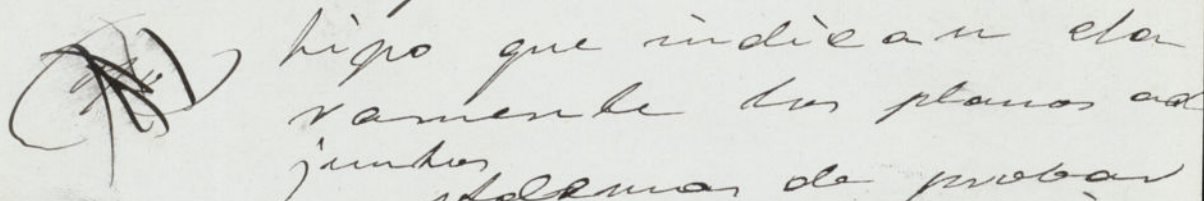 tipo que indican cla
ramente los planos ad
juntos
Ademas de probar